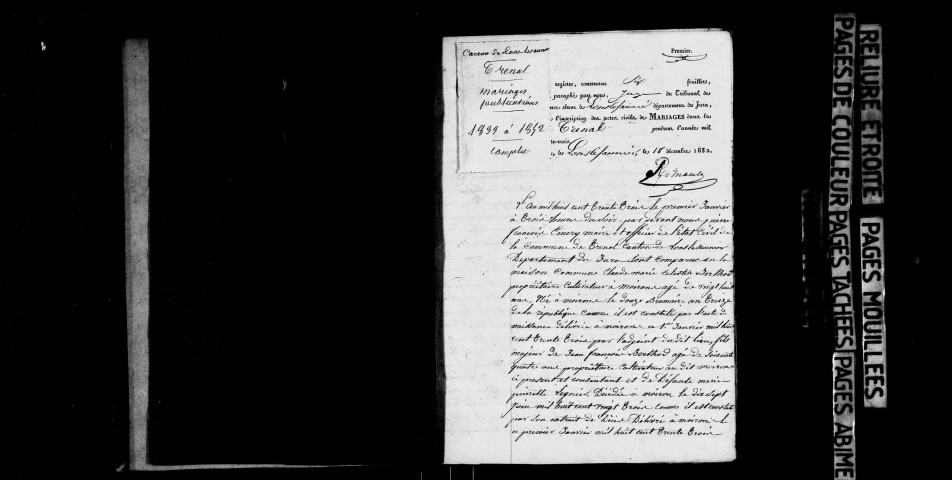 Canton de Lons-le-saunier
Trenal
mariages
publications
1833 à 1842
complet
Premier.
egistre, contenant Six feuillets,
paraphé par nous, Juge du Tribunal de
nce séant de Lons le Saunier département du Jura,
l'inscription des actes civils de MARIAGES dans la
Trenal pendant l'année mil
te-trois
de Lons le Saunier, le 18 décembre 1832.
L'An mil huit cent trente trois le premier Janvier
à trois heures du soir, par devant nous pierre
françois Emery maire et officier de l'état civil de
la commune de Trenal Canton de Lonslesaunier
Département du Jura sont comparus en la
maison commune Claude marie Berthod
propriétaire cultivateur à moirone agé de vingt huit
ans, Né à moirone le douze Brumaire an treize
de la république comme il est constaté par l'acte de
naissance délivré à moirone ce 1er Janvier mil huit
cent trente trois par l'adjoint du dit lieu, fils
majeur de Jean françois Berthod agé de soixante
quatre ans propriétaire cultivateur au dit moirone
ci present et consentant et de Défunte marie
pierrette Décédée à moiron le dix sept
Juin mil huit cent vingt trois comme il est constaté
par son extrait de Décé Délivré à moiron le
premier Janvier mil huit cent trente trois
RELIURE ETROITE PAGES MOUILLEES
PAGES DE COULEUR PAGES TACHEES PAGES ABIME